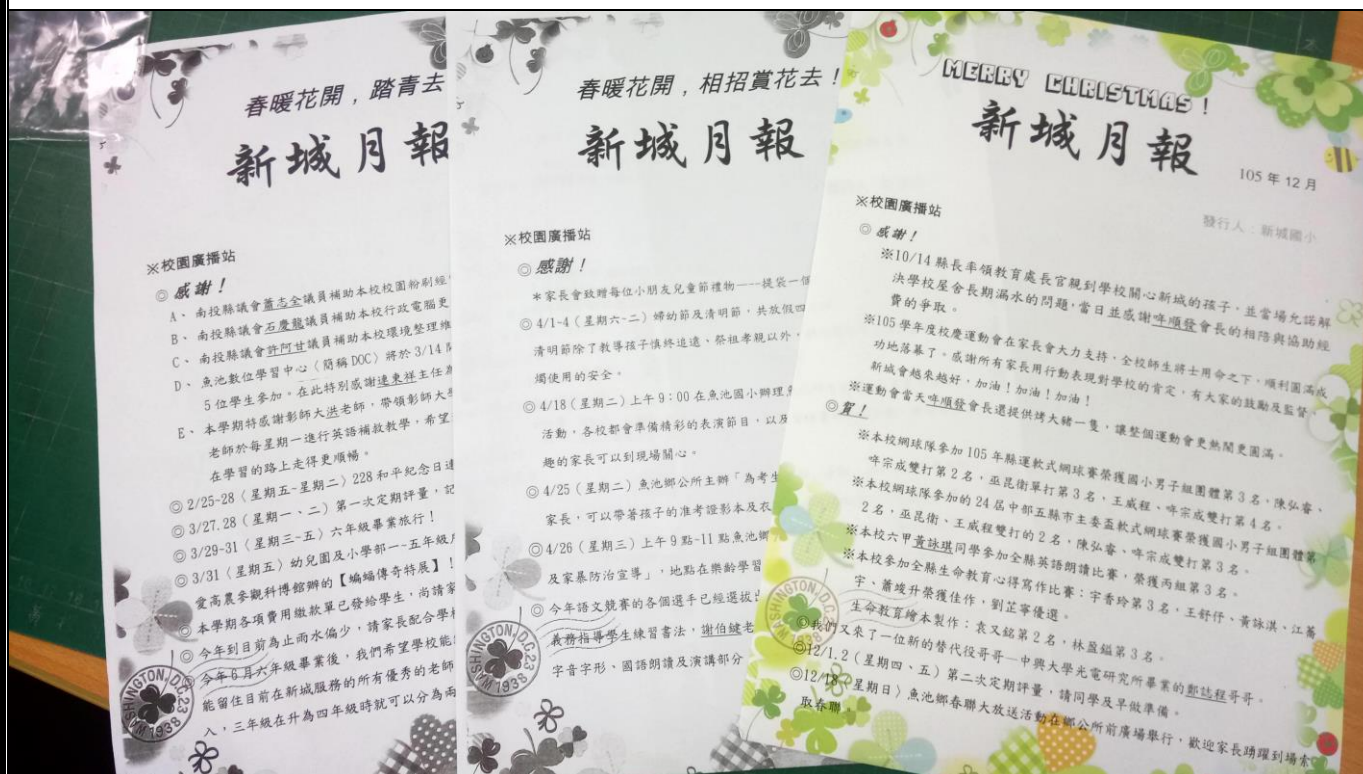 春暖花開，踏青去
新城月報
※校園廣播站
◎感謝！
A、 南投縣議會蕭志全議員補助本校校園粉刷經
B、 南投縣議會石慶龍議員補助本校行政電腦更
C、 南投縣議會許阿甘議員補助本校環境整理維
D、 魚池數位學習中心（簡稱 DOC）將於 3/14 開
5 位學生參加。在此特別感謝連東祥主任為
E、 本學期特感謝彰師大洪老師，帶領彰師大學
老師於每星期一進行英語補救教學，希望
在學習的路上走得更順暢。
◎2/25~28（星期五~星期二）228 和平紀念日連
◎3/27.28（星期一、二）第一次定期評量，記
◎3/29~31（星期三~五）六年級畢業旅行！
◎3/31（星期五）幼兒園及小學部一~五年級
愛高農參觀科博館辦的【蝙蝠傳奇特展】！
◎本學期各項費用繳款單已發給學生，尚請家
◎今年到目前為止雨水偏少，請家長配合學校
◎今年6月六年級畢業後，我們希望學校能
能留住目前在新城服務的所有優秀的老師
入，三年級在升為四年級時就可以分為兩
WASHINGTON, D.C. 23
1938
春暖花開，相招賞花去！
新城月報
※校園廣播站
◎感謝！
＊家長會致贈每位小朋友兒童節禮物----提袋一個
◎4/1~4（星期六~二）婦幼節及清明節，共放假四
清明節除了教導孩子慎終追遠、祭祖孝親以外，
燭使用的安全。
◎4/18（星期二）上午 9：00 在魚池國小辦理
活動，各校都會準備精彩的表演節目，以及
趣的家長可以到現場關心。
◎4/25（星期二）魚池鄉公所主辦「為考生
家長，可以帶著孩子的准考證影本及衣
◎4/26（星期三）上午 9 點~11 點魚池鄉
及家暴防治宣導」，地點在樂齡學習
◎今年語文競賽的各個選手已經選拔出
義務指導學生練習書法，謝伯鍵老
字音字形、國語朗讀及演講部分
WASHINGTON, D.C. 23
1938
MERRY CHRISTMAS！
新城月報
105 年 12 月
發行人：新城國小
※校園廣播站
◎感謝！
※10/14 縣長率領教育處長官親到學校關心新城的孩子，並當場允諾解
決學校屋舍長期漏水的問題，當日並感謝啐順發會長的相陪與協助經
費的爭取。
※105 學年度校慶運動會在家長會大力支持、全校師生將士用命之下，順利圓滿成
功地落幕了。感謝所有家長用行動表現對學校的肯定，有大家的鼓勵及監督，
新城會越來越好，加油！加油！加油！
※運動會當天啐順發會長還提供烤大豬一隻，讓整個運動會更熱鬧更圓滿。
◎賀！
※本校網球隊參加 105 年縣運軟式網球賽榮獲國小男子組團體第 3 名，陳弘睿、
啐宗成雙打第 2 名，巫昆衛單打第 3 名、王威程、啐宗成雙打第 4 名。
※本校網球隊參加的 24 屆中部五縣市主委盃軟式網球賽榮獲國小男子組團體第
2 名，巫昆衛、王威程雙打的 2 名，陳弘睿、啐宗成雙打第 3 名。
※本校六甲黃詠琪同學參加全縣英語朗讀比賽，榮獲丙組第 3 名。
※本校參加全縣生命教育心得寫作比賽：宇香玲第 3 名，王舒伃、黃詠淇、江蕎
宇、蕭竣升榮獲佳作，劉芷寧優選。
生命教育繪本製作：袁又銘第 2 名，林盈鎰第 3 名。
◎我們又來了一位新的替代役哥哥—中興大學光電研究所畢業的鄭誌程哥哥。
◎12/1.2（星期四、五）第二次定期評量、請同學及早做準備。
◎12/18（星期日）魚池鄉春聯大放送活動在鄉公所前廣場舉行，歡迎家長踴躍到場索
取春聯。
WASHINGTON, D.C.
1938